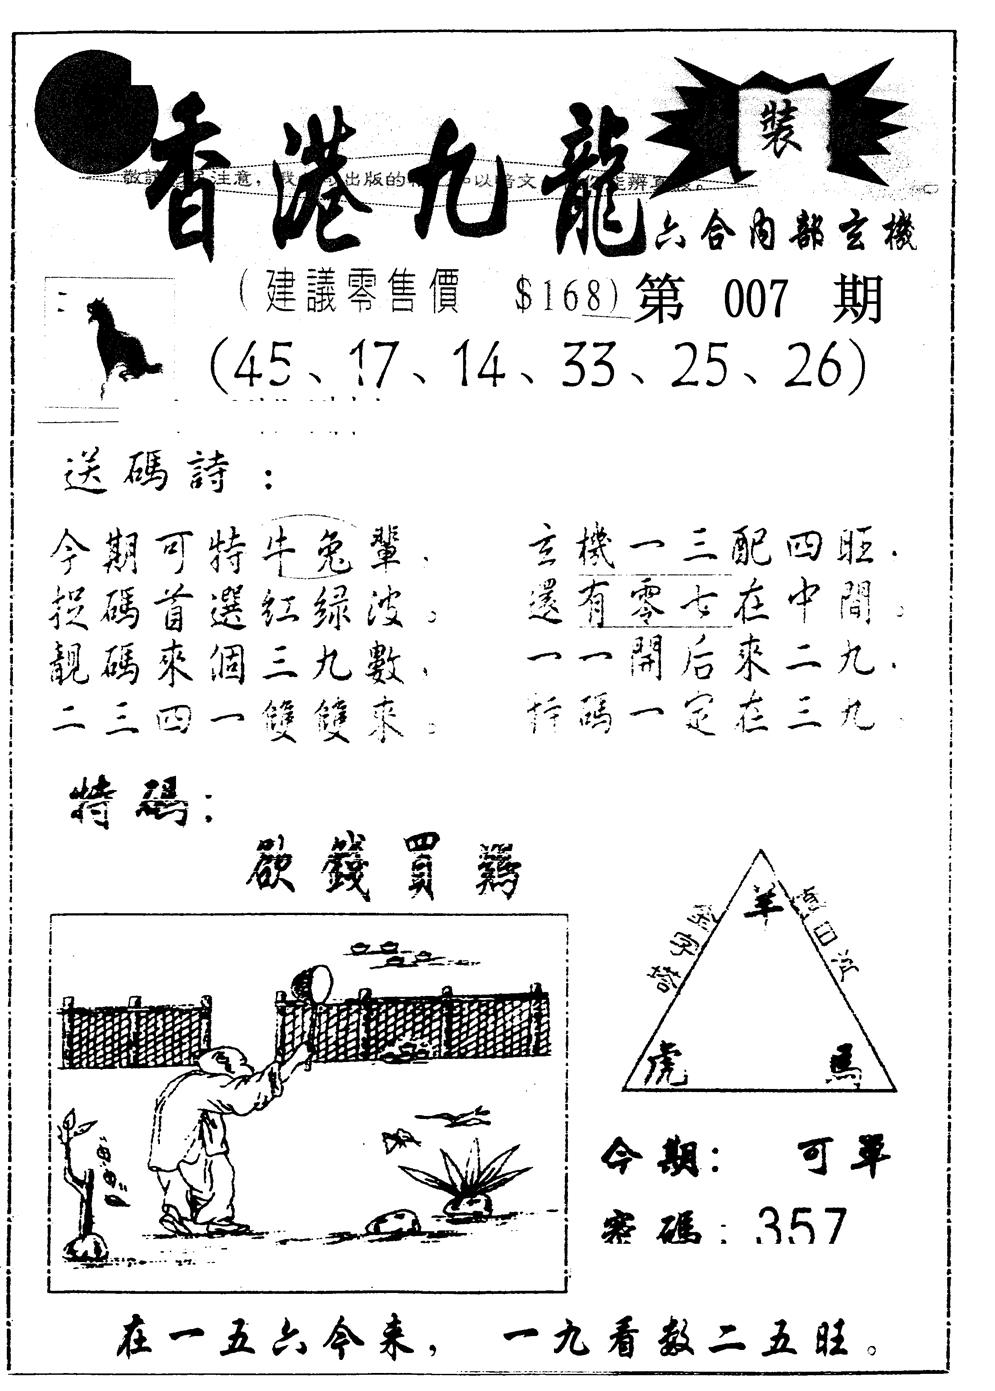 香港九龍
裝
六合內部玄機
(建議零售價 $168)
第 007 期
(45、17、14、33、25、26)
送碼詩：
今期可特牛兔輩，
捉碼首選紅绿波。
靚碼來個三九數，
二三四一雙雙來。
玄機一三配四旺，
還有零七在中間。
一一開后來二九，
特碼一定在三九。
特碼：
欲錢買鷄
羊
虎
馬
今期： 可單
密碼：357
在一五六今来， 一九看数二五旺。